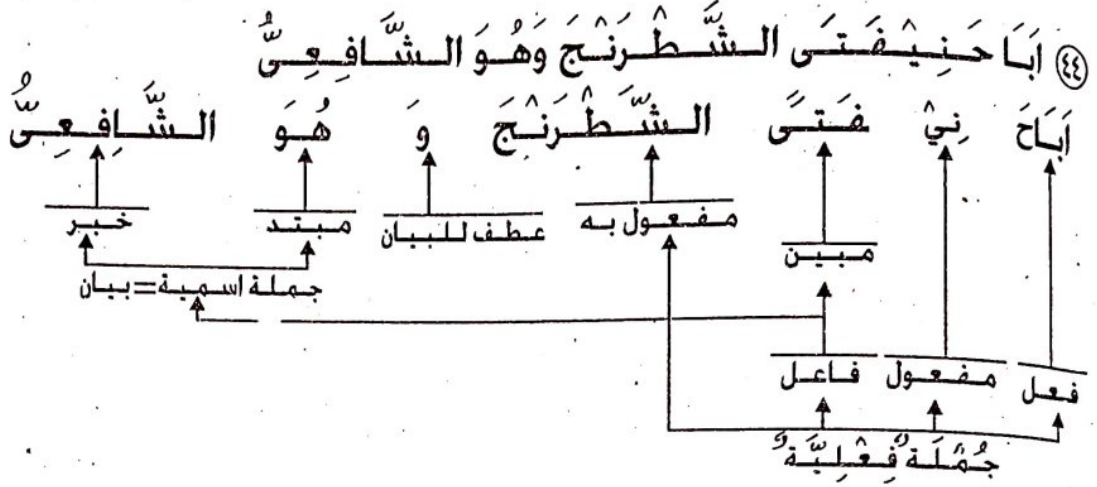 ٤٤ اَبَا حَنِيْفَتَى الشَّطْرَنْجَ وَهُوَ الشَّافِعِىُّ
اَبَاحَ نِيْ فَتًى الشَّطْرَنْجَ وَ هُوَ الشَّافِعِىُّ
مفعول به عطف للبيان مبتد خبر
مبين
جملة اسمية=بيان
فعل مفعول فاعل
جُمْلَةٌ فِعْلِيَّةٌ